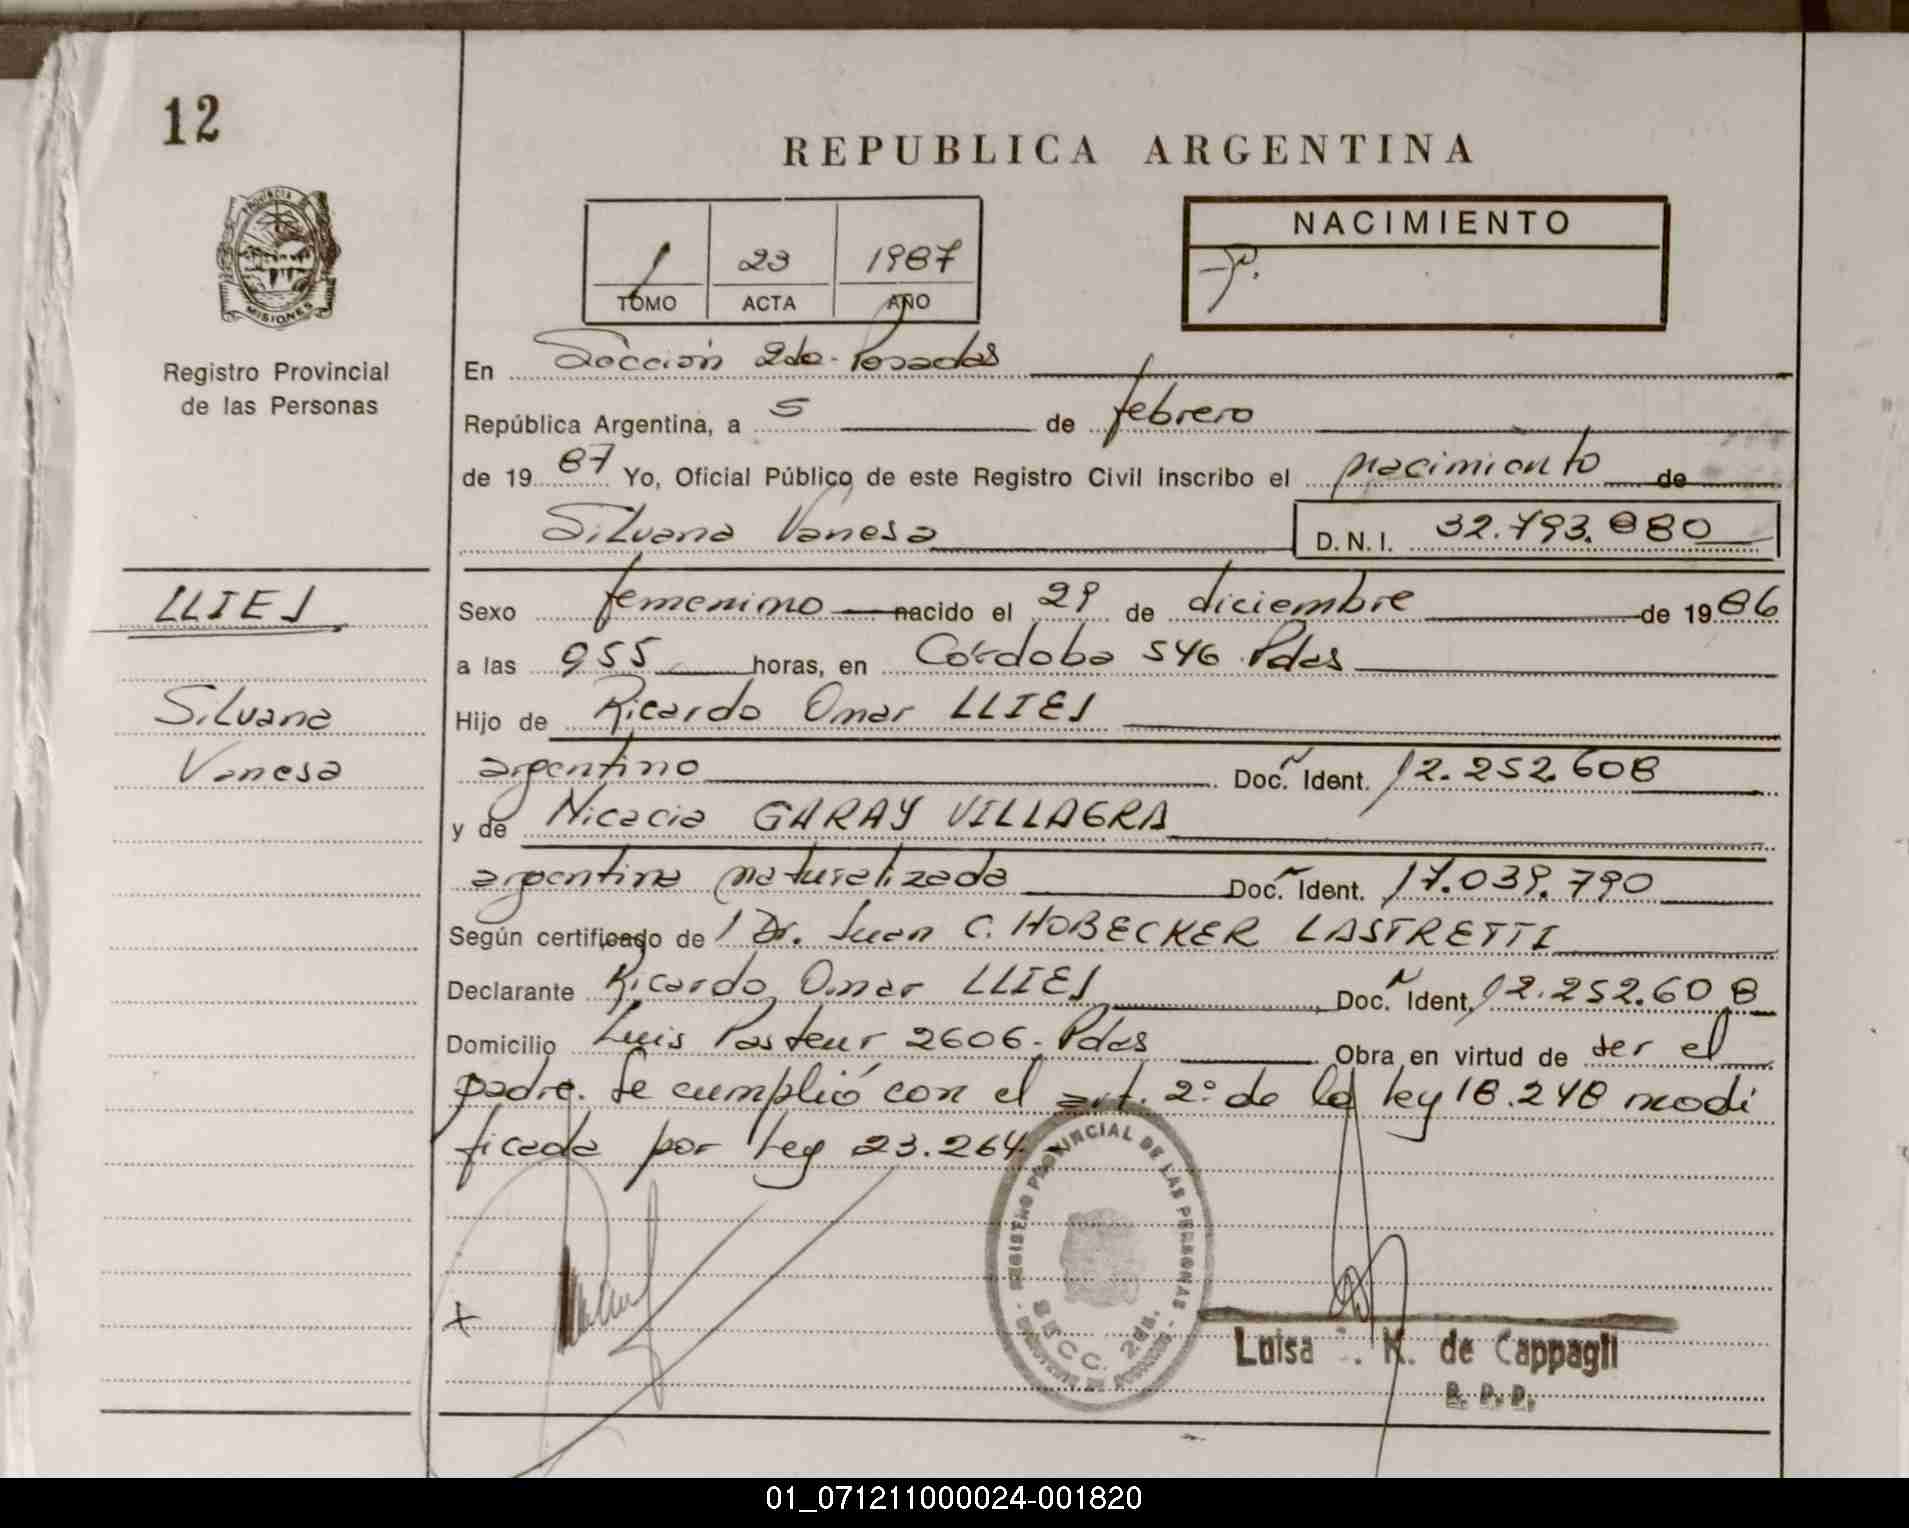 12
REPUBLICA ARGENTINA
PROVINCIA DE
MISIONES
Registro Provincial
de las Personas
1 23 1987
TOMO ACTA AÑO
NACIMIENTO
En Sección 2da. Posadas
República Argentina, a 5 de febrero
de 1987 Yo, Oficial Público de este Registro Civil inscribo el nacimiento de
Silvana Vanesa D.N.I. 32.793.880
LLIES
Silvana
Vanesa
Sexo femenino nacido el 29 de diciembre de 1986
a las 955 horas, en Córdoba 546 Pdas
Hijo de Ricardo Omar LLIES
argentino Doc. Ident. 12.252.608
y de Nicacia GARAY VILLAGRA
argentina naturalizada Doc. Ident. 17.039.790
Según certificado de l Dr. Juan C. HOBECKER LASTRETTI
Declarante Ricardo Omar LLIES Doc. Ident. 12.252.608
Domicilio Luis Pasteur 2606. Pdas Obra en virtud de ser el
padre. Se cumplió con el art. 2º de la ley 18.248 modi
ficada por ley 23.264.
REGISTRO PROVINCIAL DE LAS PERSONAS
SECC. 2da.
Luisa K. de Cappagli
01_071211000024-001820